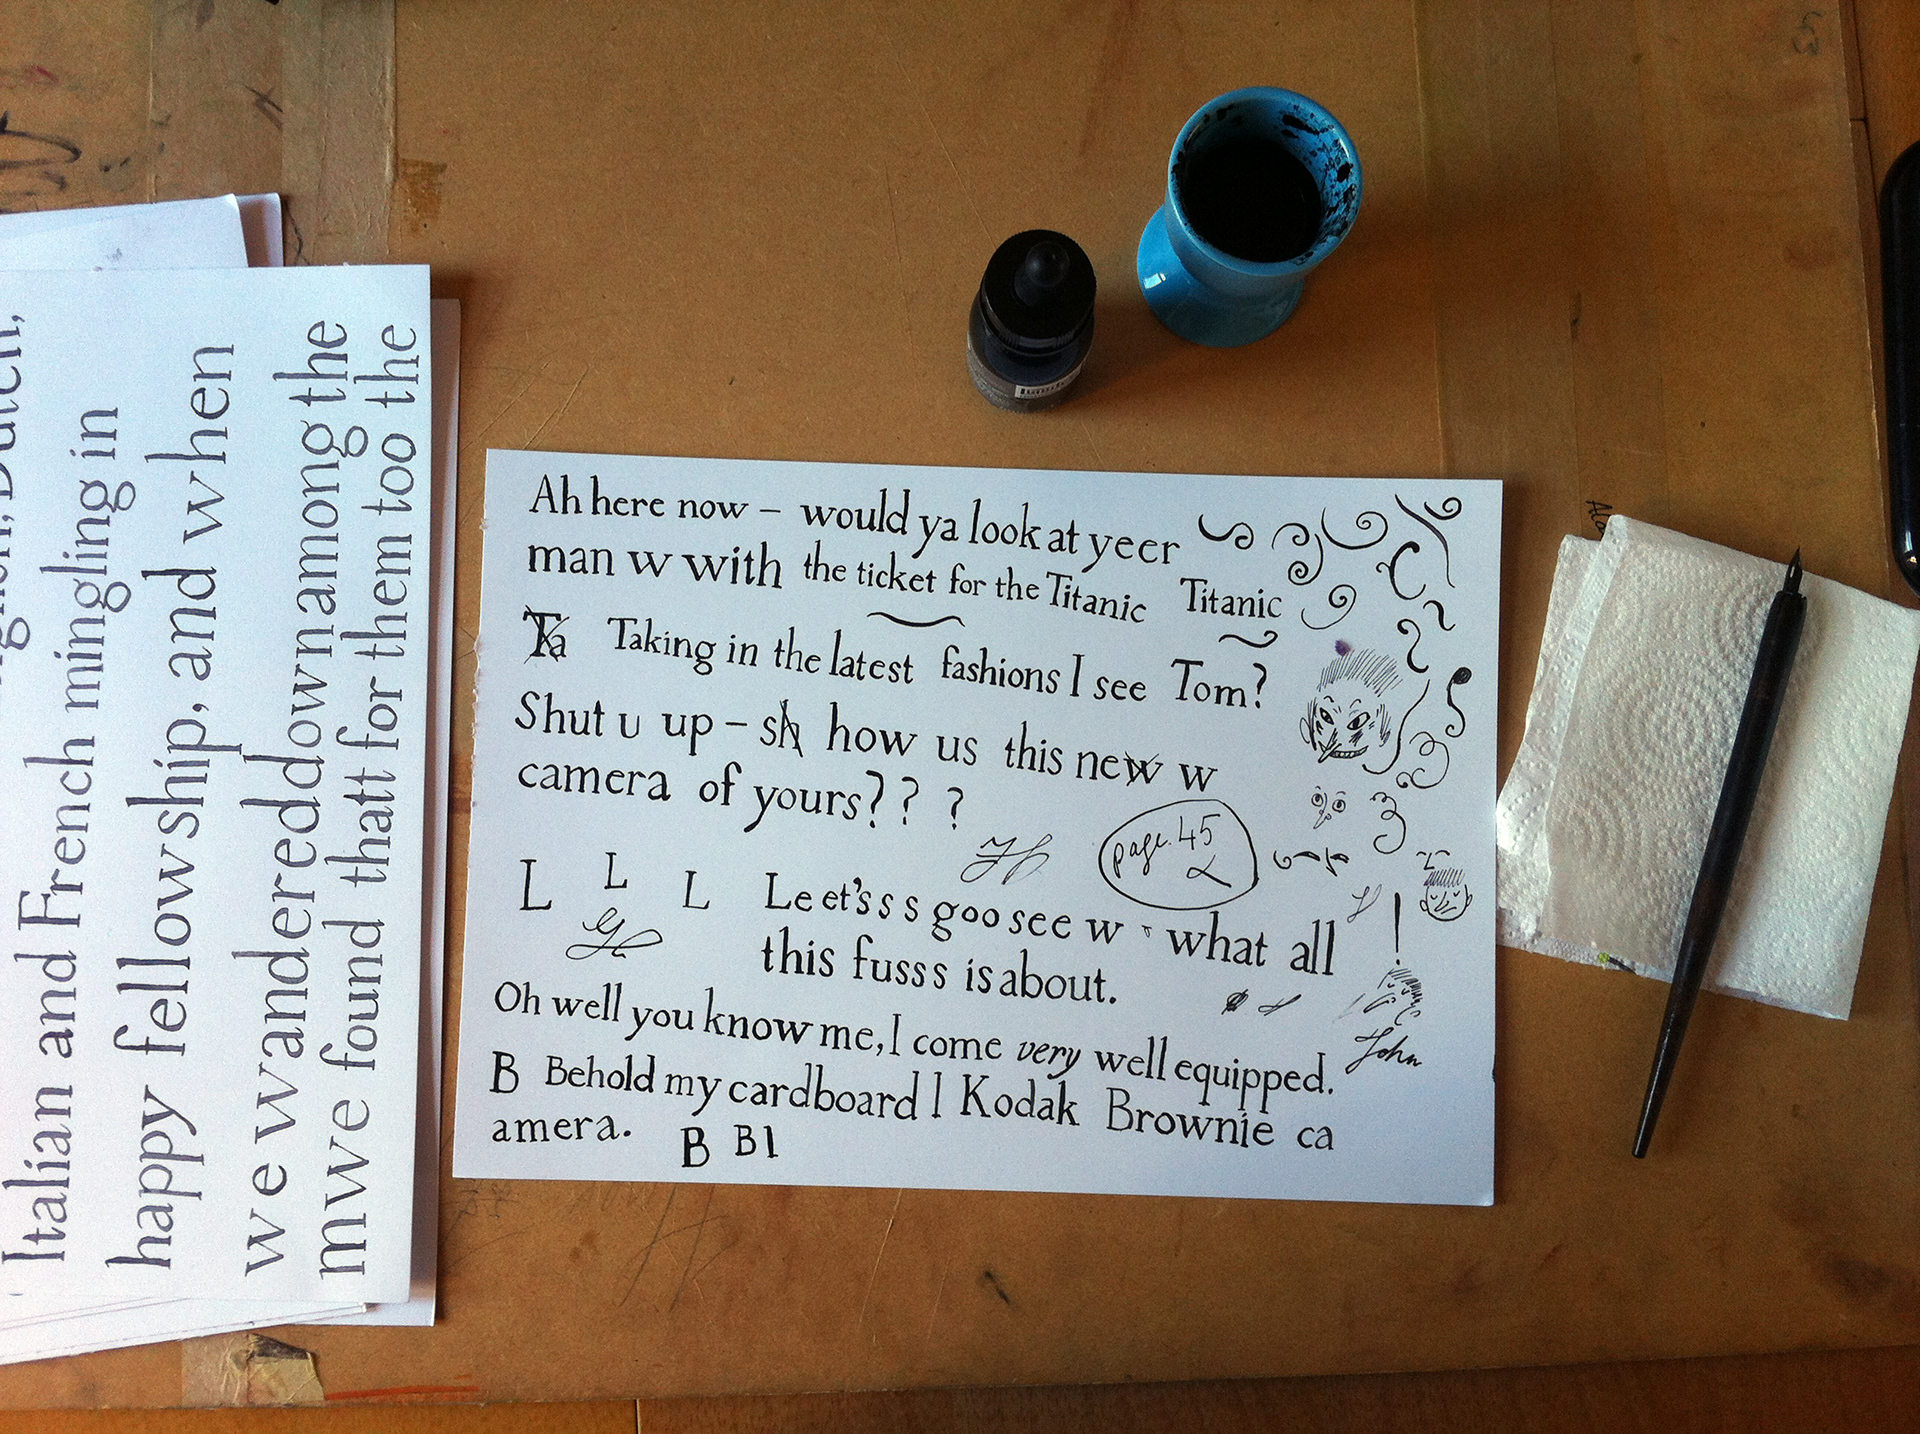 Ah here now – would ya look at yeer
man w with the ticket for the Titanic Titanic
Ta Taking in the latest fashions I see Tom?
Shut u up – sh how us this new w
camera of yours? ? ?
page. 45
L L L Le et's s s goo see w what all
this fusss is about.
Oh well you know me, I come very well equipped.
John
B Behold my cardboard l Kodak Brownie ca
amera. B Bl
Italian and French mingling in
happy fellowship, and when
w e wandered down among the
mwe found thatt for them too the